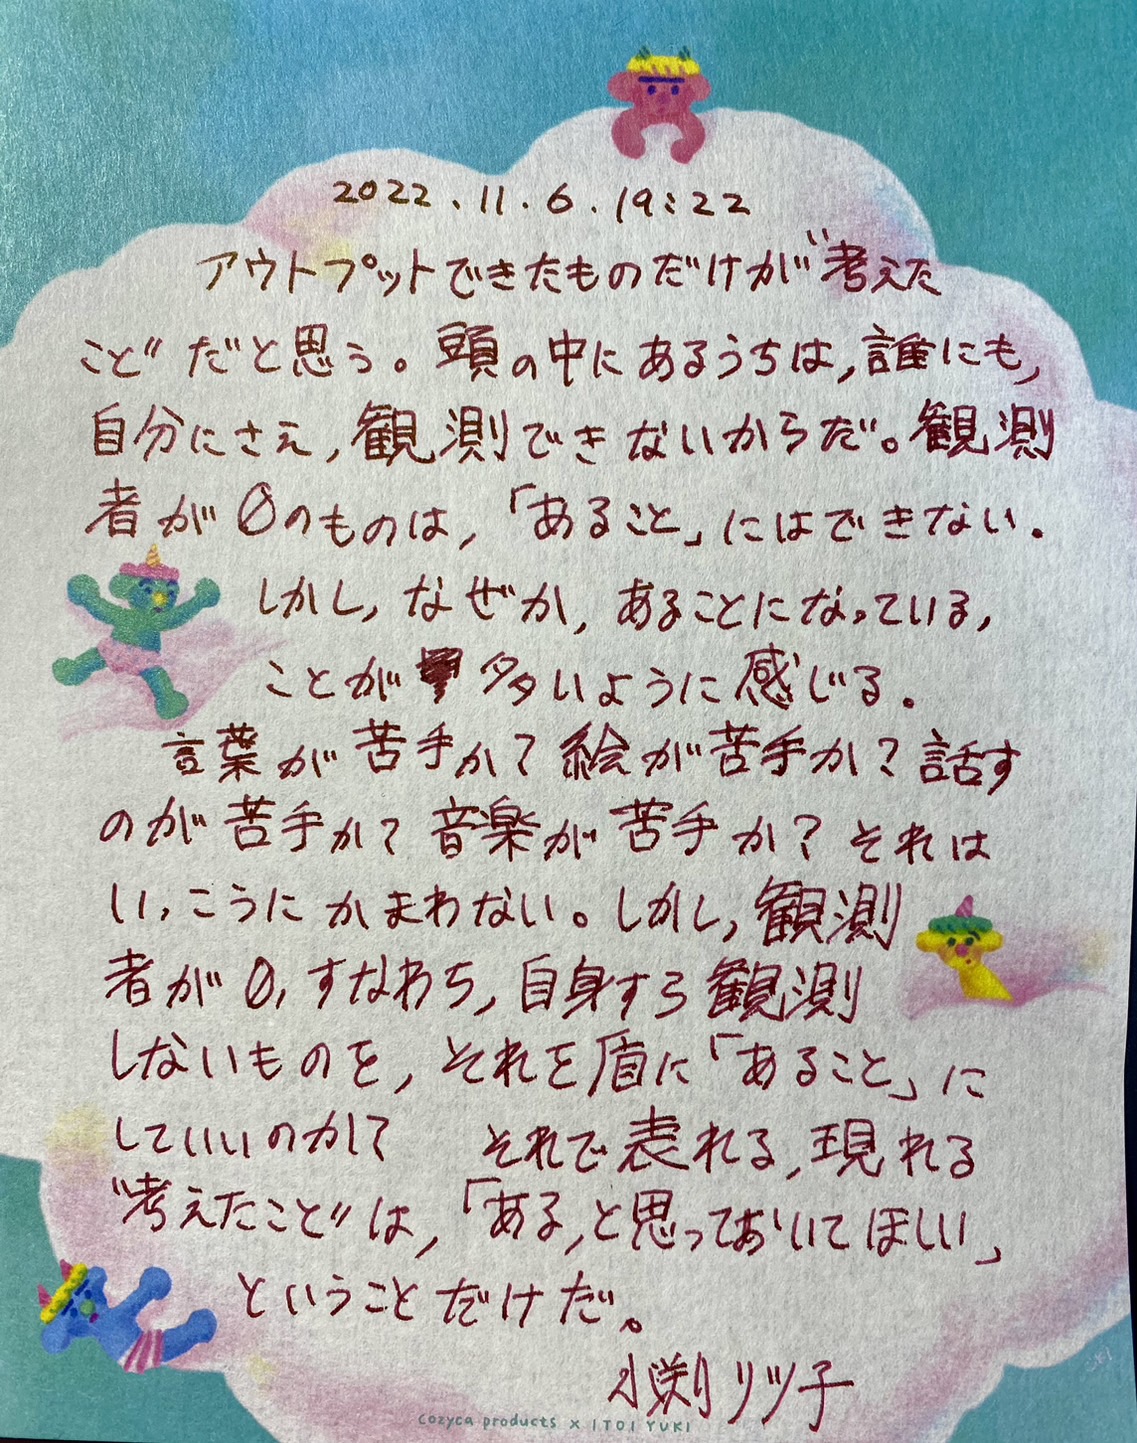 2022.11.6.19:22
アウトプットできたものだけが“考えた
こと”だと思う。頭の中にあるうちは,誰にも,
自分にさえ,観測できないからだ。観測
者が0のものは,「あること」にはできない.
しかし,なぜか,あることになっている,
ことが多いように感じる.
言葉が苦手か?絵が苦手か?話す
のが苦手か?音楽が苦手か?それは
いっこうにかまわない。しかし,観測
者が0,すなわち,自身すら観測
しないものを,それを盾に「あること」に
していいのか? それで表れる,現れる
“考えたこと”は,「ある,と思っておいてほしい」
ということだけだ。
小渕リツ子
cozyca products x ITOI YUKI